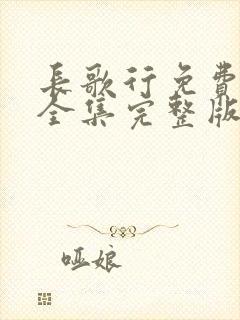 长歌行免费
全集完整版
哑娘